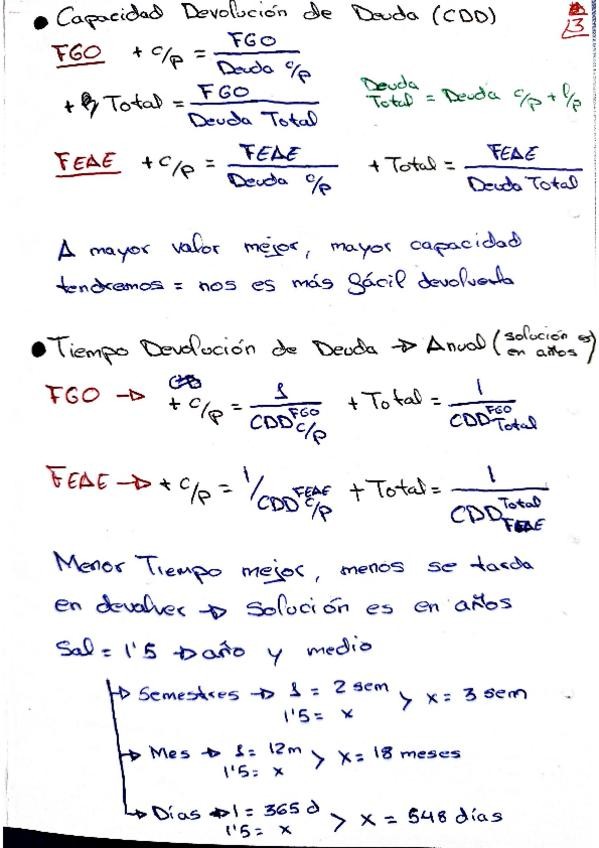 • Capacidad Devolución de Deuda (CDD)
13
FGO + c/p = FGO / Deuda c/p
+ Total = FGO / Deuda Total
Deuda Total = Deuda c/p + l/p
FEAE + c/p = FEAE / Deuda c/p + Total = FEAE / Deuda Total
A mayor valor mejor, mayor capacidad
tendremos = nos es más fácil devolverla
• Tiempo Devolución de Deuda → Anual (solución es en años)
FGO → + c/p = 1 / CDD FGO c/p + Total = 1 / CDD FGO Total
FEAE → + c/p = 1/CDD FEAE c/p + Total = 1 / CDD Total FEAE
Menor Tiempo mejor, menos se tarda
en devolver → Solución es en años
Sal = 1'5 → año y medio
→ Semestres → 1 = 2 sem > x = 3 sem
1'5 = x
→ Mes → 1 = 12m > x = 18 meses
1'5 = x
→ Días → 1 = 365 d > x = 548 días
1'5 = x